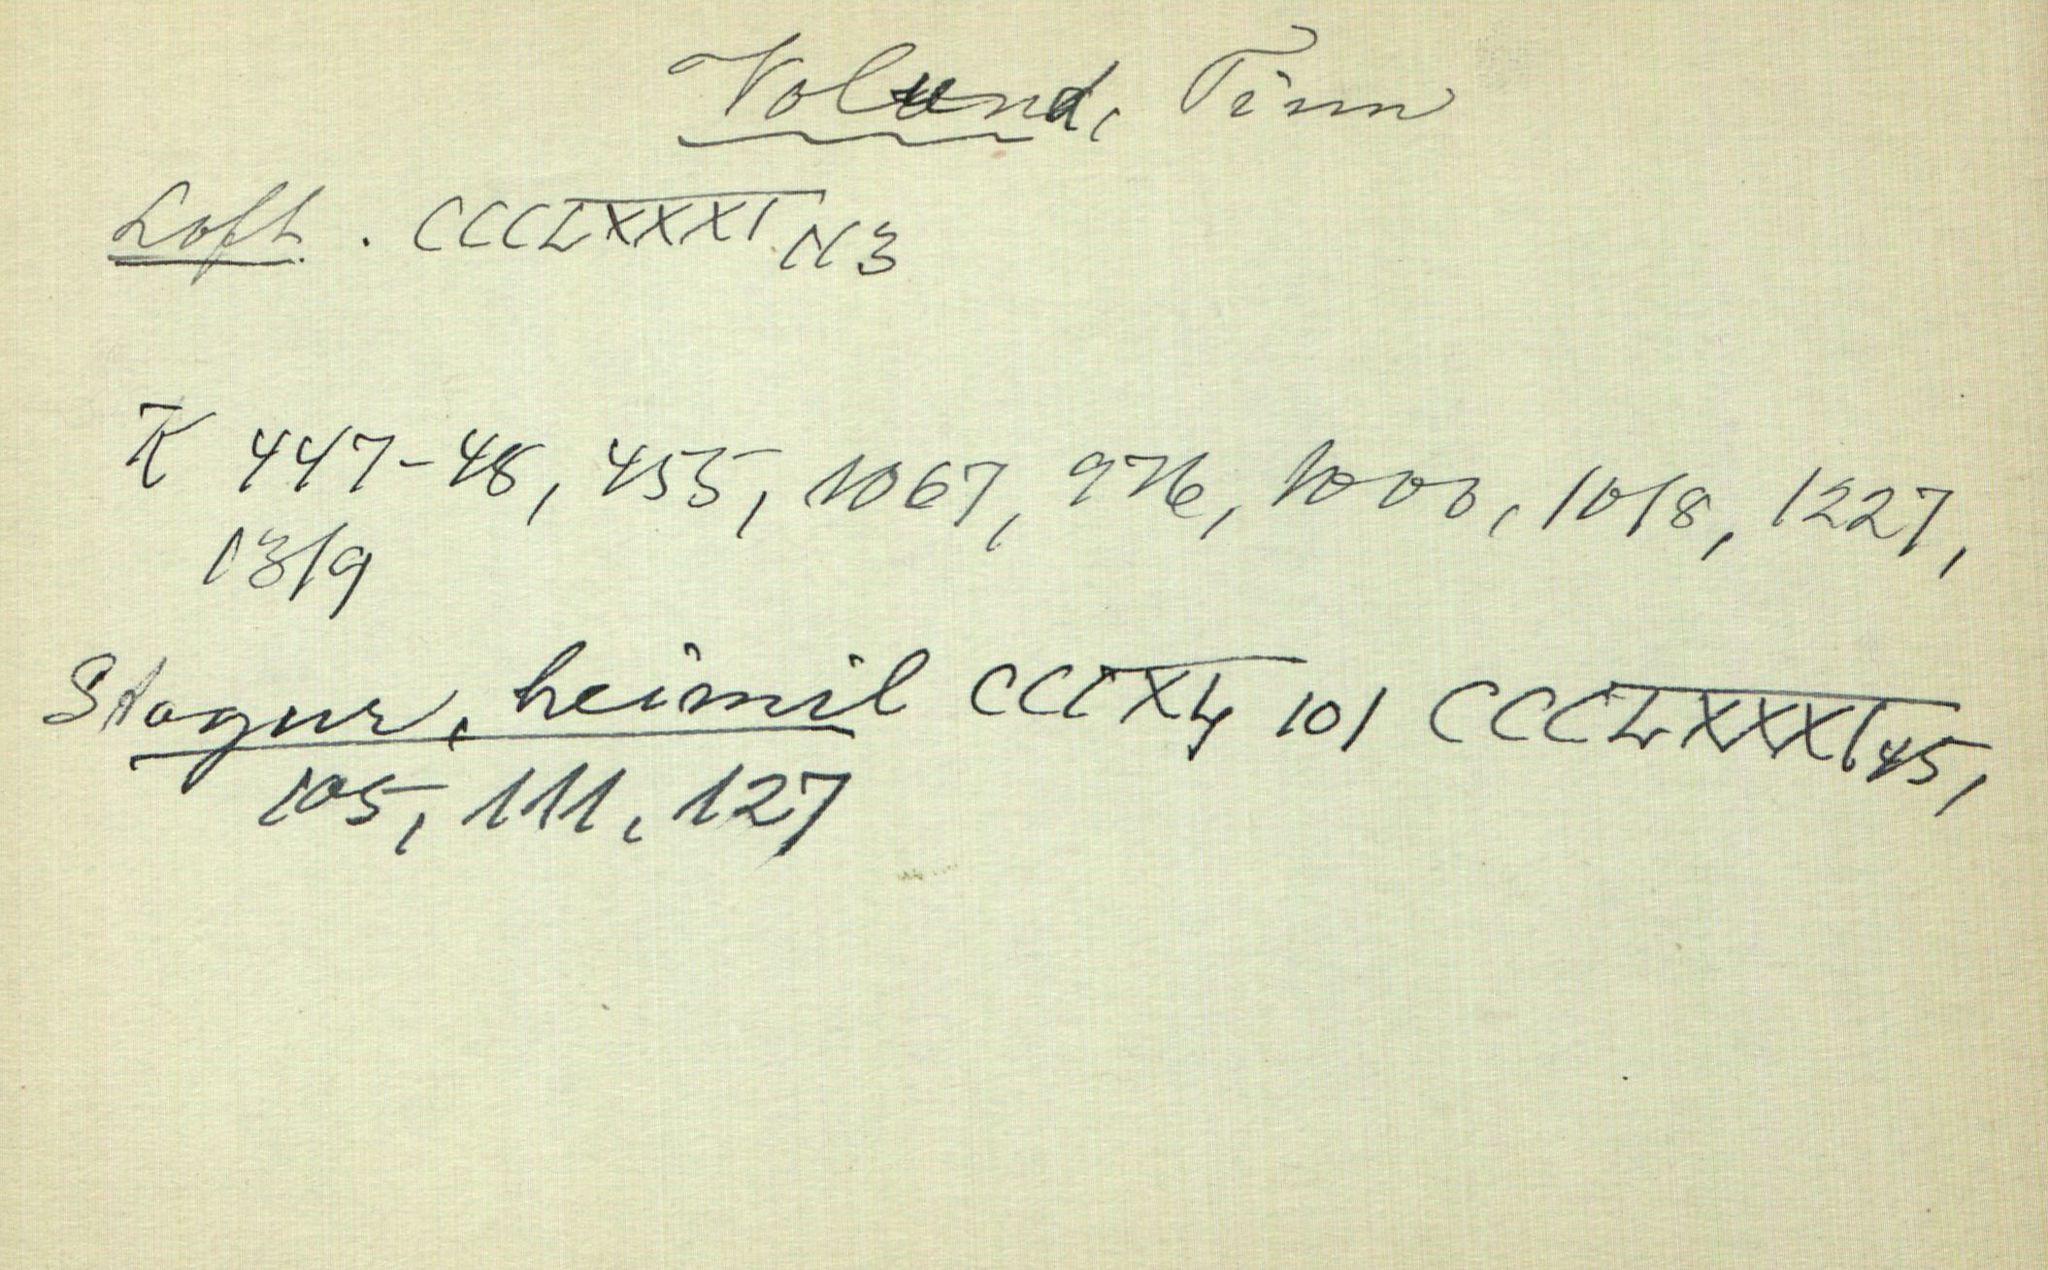 Volund, Tinn
Loft. CCCLXXXI N3
K 447-48, 455, 1067, 976, 1000, 1018, 1227,
1319
Stogur, heimil CCCXL 101 CCCLXXXI 45,
105, 111, 127